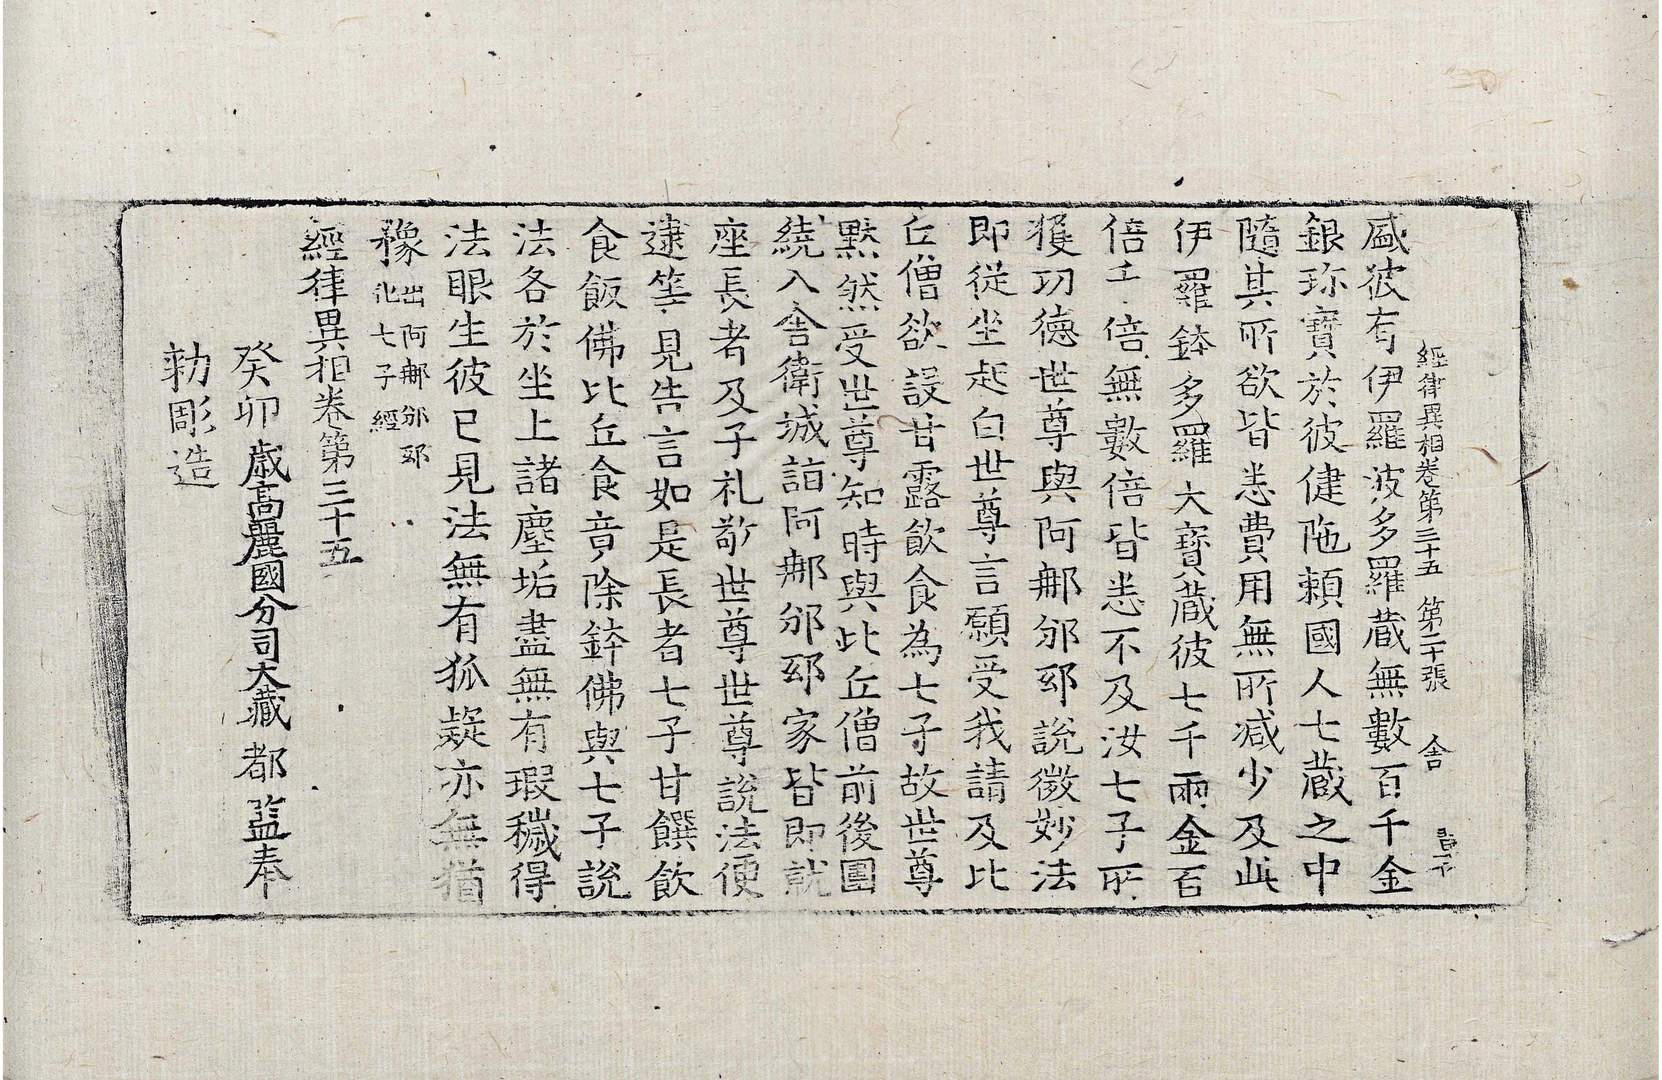 經律異相卷第三十五 第二十張 舍
盛彼有伊羅波多羅藏無數百千金
銀珎寶於彼健陁賴國人七藏之中
隨其所欲皆悉費用無所減少及此
伊羅鉢多羅大寶藏彼七千兩金百
倍千倍無數倍皆悉不及汝七子所
獲功德世尊與阿那邠邸說微妙法
即從坐起白世尊言願受我請及比
丘僧欲設甘露飲食為七子故世尊
默然受世尊知時與比丘僧前後圍
繞入舍衛城詣阿那邠邸家皆即就
座長者及子礼敬世尊世尊說法便
逮等見告言如是長者七子甘饌飲
食飯佛比丘食竟除鉢佛與七子說
法各於坐上諸塵垢盡無有瑕穢得
法眼生彼已見法無有狐疑亦無猶
豫 出阿那邠邸
化七子經
經律異相卷第三十五
癸卯歲高麗國分司大藏都監奉
勑彫造